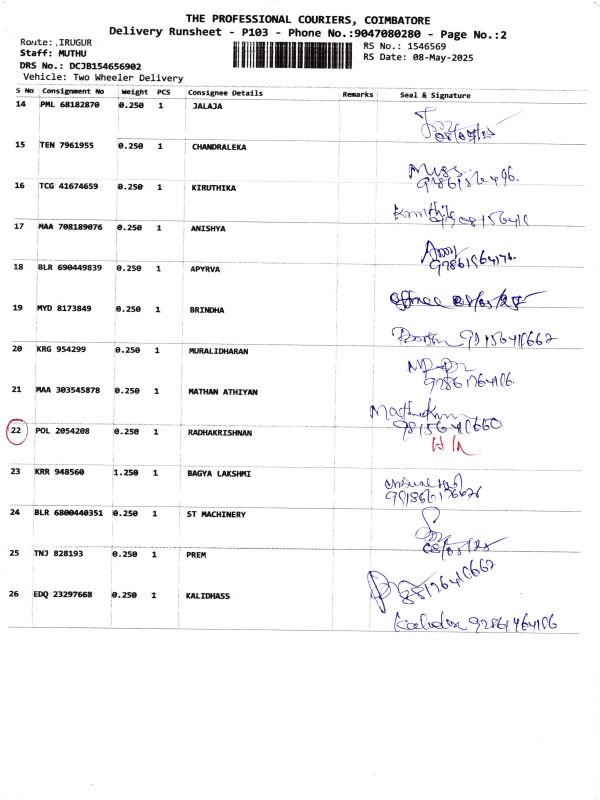 THE PROFESSIONAL COURIERS, COIMBATORE
Delivery Runsheet - P103 - Phone No.:9047080280 - Page No.:2
Route: ,IRUGUR
RS No.: 1546569
Staff: MUTHU
RS Date: 08-May-2025
DRS No.: DCJB154656902
Vehicle: Two Wheeler Delivery
S No Consignment No Weight PCS Consignee Details Remarks Seal & Signature
14 PML 68182870 0.250 1 JALAJA
15 TEN 7961955 0.250 1 CHANDRALEKA
16 TCG 41674659 0.250 1 KIRUTHIKA
17 MAA 708189076 0.250 1 ANISHYA
18 BLR 690449839 0.250 1 APYRVA
office
19 MYD 8173849 0.250 1 BRINDHA
20 KRG 954299 0.250 1 MURALIDHARAN
21 MAA 303545878 0.250 1 MATHAN ATHIYAN
22 POL 2054208 0.250 1 RADHAKRISHNAN
23 KRR 948560 1.250 1 BAGYA LAKSHMI
24 BLR 6800440351 0.250 1 ST MACHINERY
25 TNJ 828193 0.250 1 PREM
26 EDQ 23297668 0.250 1 KALIDHASS